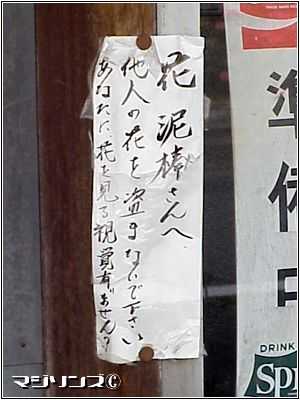 花泥棒さんへ
他人の花を盗まないで下さい
あなたに花を見る視覚有りません?
準備中
DRINK
Sp
マジソンズ©